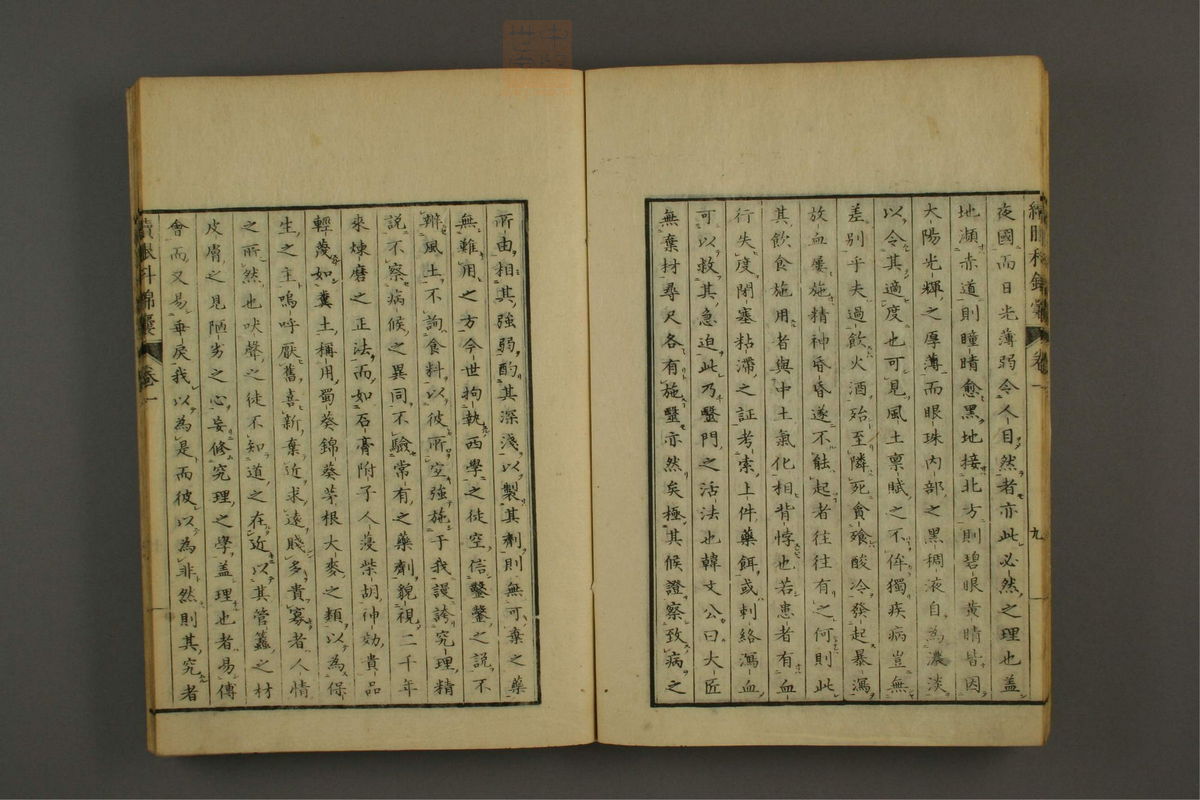 續眼科錦囊 卷一 九
夜國而日光薄弱令人目然者亦此必然之理也蓋
地瀕赤道則瞳睛愈黑地接北方則碧眼黃睛皆因
大陽光輝之厚薄而眼珠內部之黑稠液自為濃淡
以令其適度也可見風土稟賦之不侔獨疾病豈無
差別乎夫過飲火酒殆至隣死貪飧酸冷發起暴瀉
放血屢施精神昏昏遂不能起者往往有之何則此
其飲食施用者與中土氣化相背悖也若患者有血
行失度閉塞粘滯之証考索上件藥餌或刺絡瀉血
可以救其急迫此乃醫門之活法也韓文公曰大匠
無棄材尋尺各有施醫亦然矣極其候證察致病之
所由相其強弱酌其深淺以製其劑則無可棄之藥
無難用之方今世狗執西學之徒空信鑿鑿之說不
辨風土不詢食料以彼所宜強施于我謾誇究理精
說不察病候之異同不驗常有之藥劑貌視二千年
來煉磨之正法而如石膏附子人蓡柴胡神効貴品
輕蔑如糞土稱用蜀葵錦葵茅根大麥之類以為保
生之主嗚呼厭舊喜新棄近求遠賤多貴寡者人情
之所然也吠聲之徒不知道之在近以其管蠡之材
皮膚之見陋劣之心妄修究理之學蓋理也者易傳
會而又易乖戾我以為是而彼以為非然則其究者
續眼科錦囊 卷一